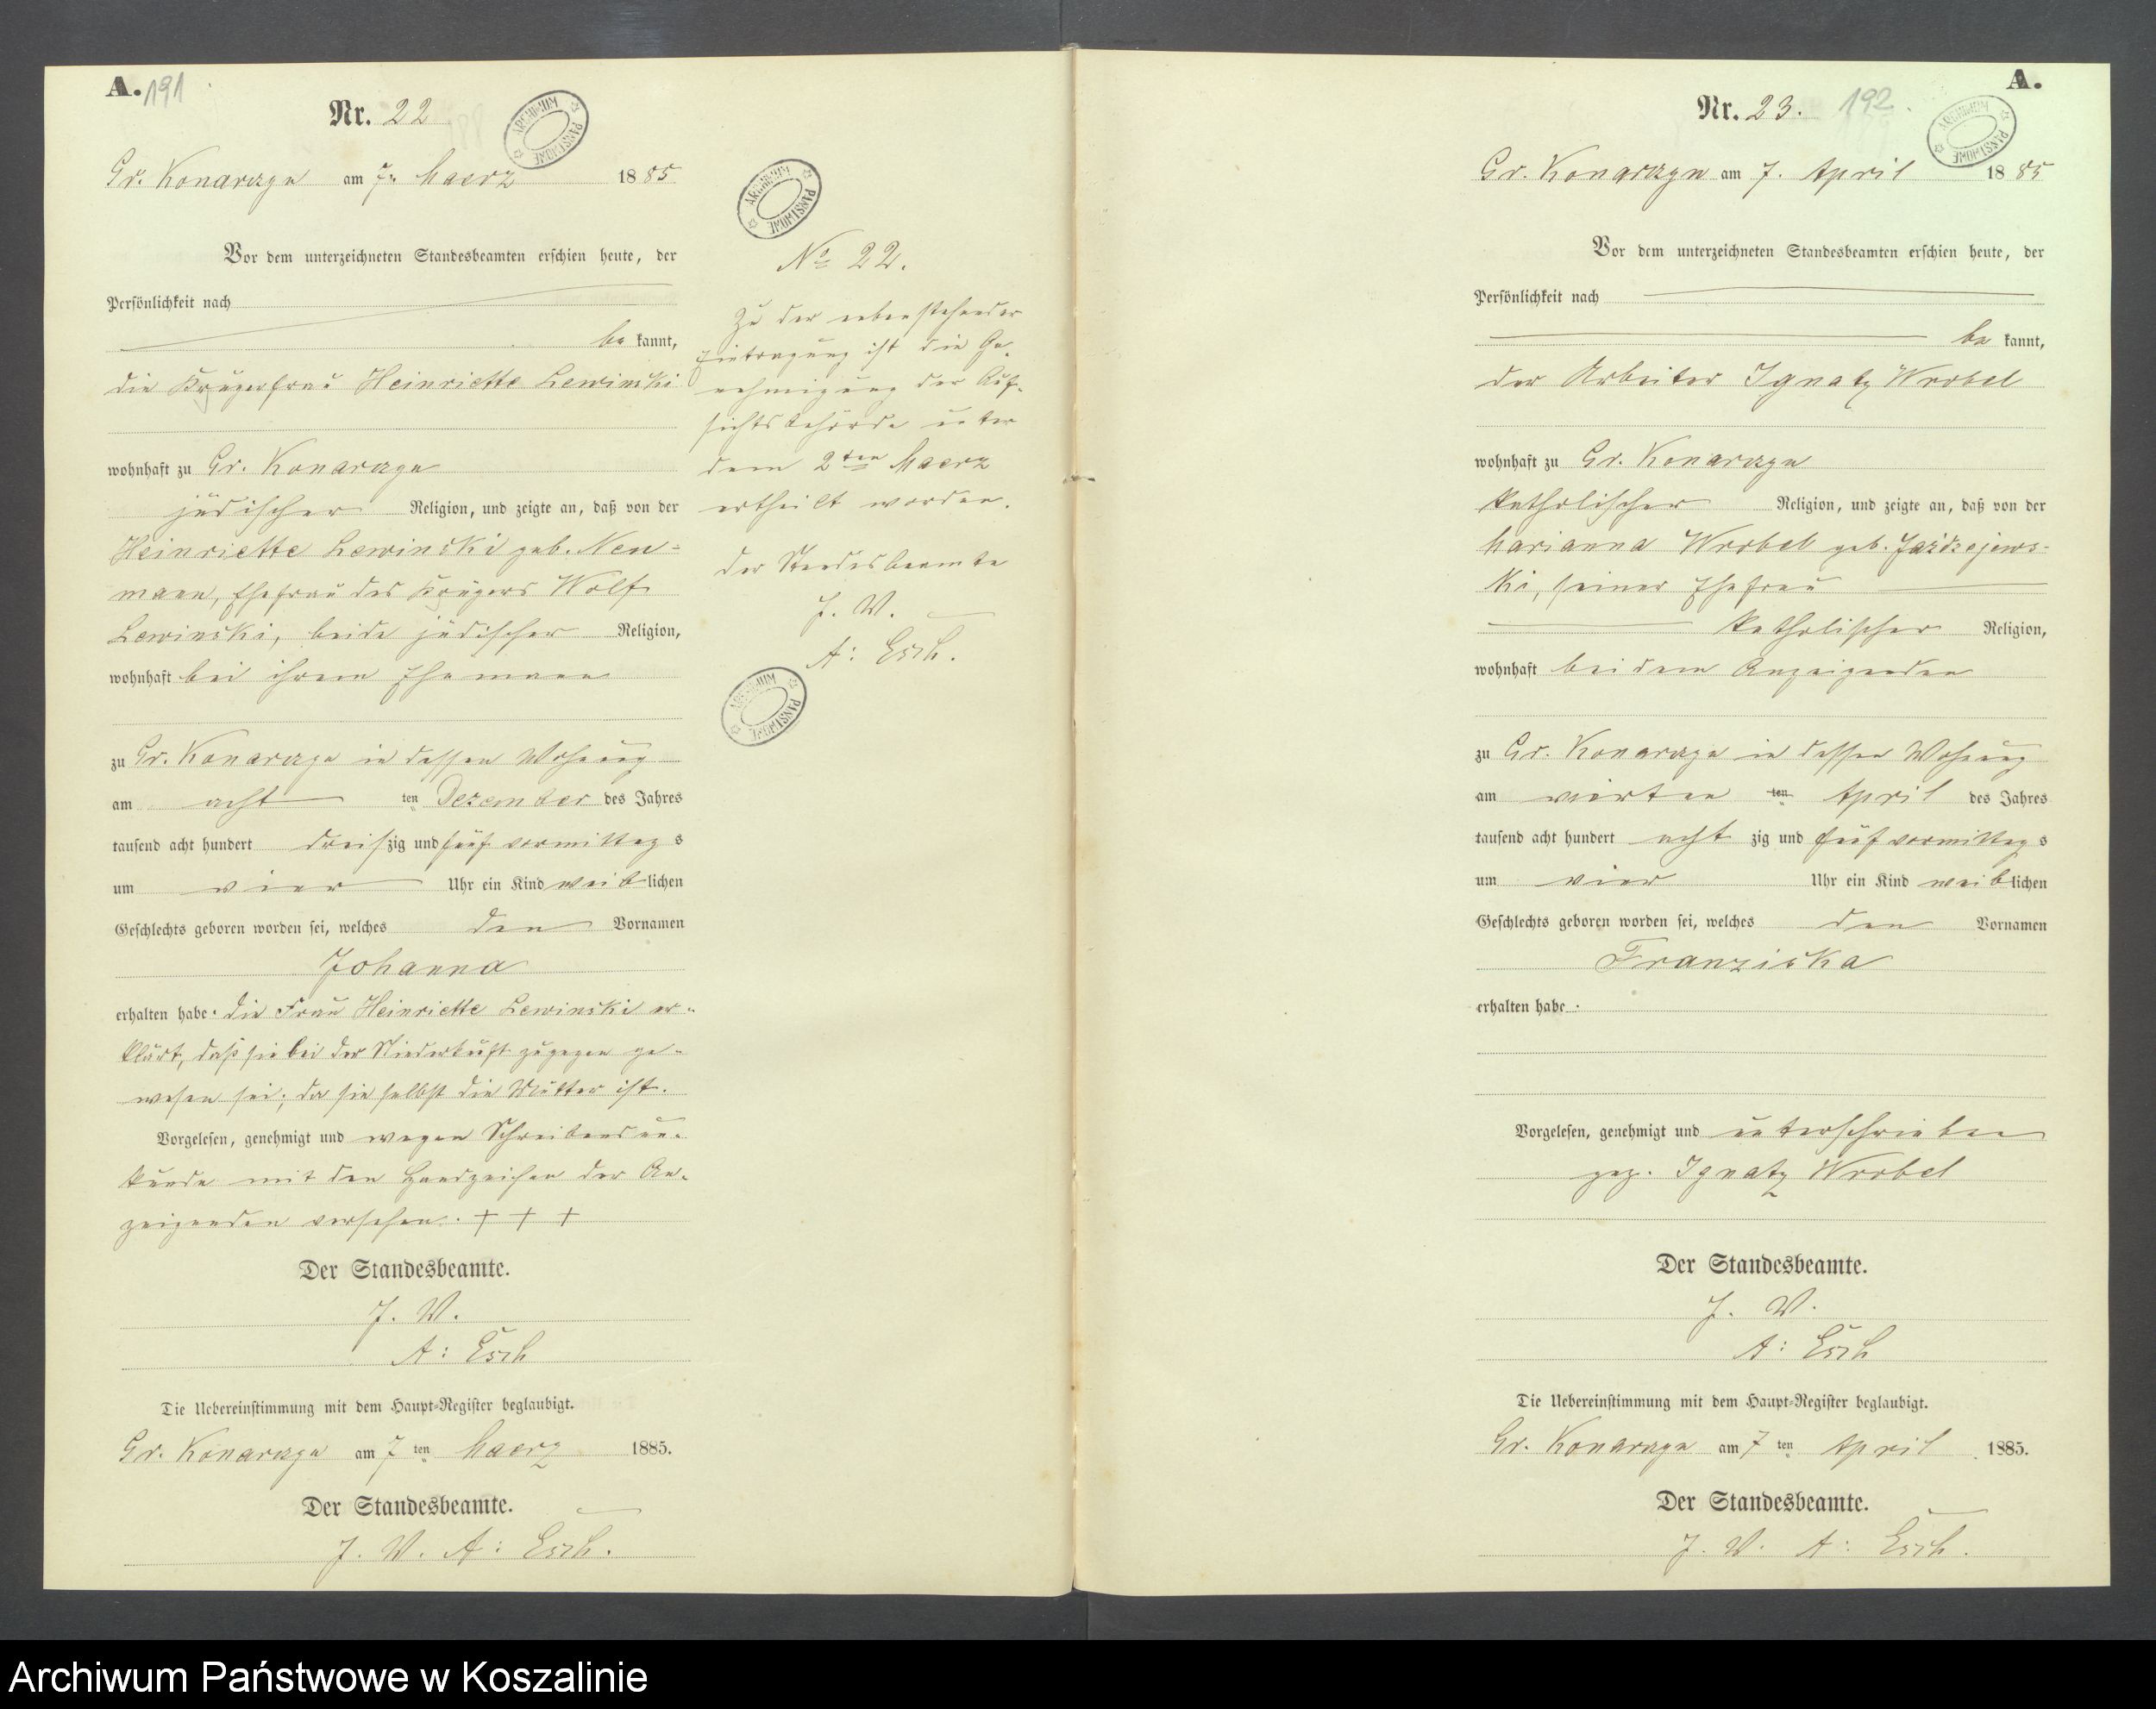 A. 191
Nr. 22
ARCHIWUM PAŃSTWOWE
Gr. Konarczyn am 7n Maerz 1885
Vor dem unterzeichneten Standesbeamten erschien heute, der
Persönlichkeit nach
be kannt,
die Krügerfrau Heinriette Lewinski
wohnhaft zu Gr. Konarczyn
jüdischer Religion, und zeigte an, daß von der
Heinriette Lewinski geb. Neu-
mann, Ehefrau des Krügers Wolf
Lewinski, beide jüdischer Religion,
wohnhaft bei ihrem Ehemann
zu Gr. Konarczyn in dessen Wohnung
am acht ten Dezember des Jahres
tausend acht hundert dreißzig und fünf vormittag s
um vier Uhr ein Kind weiblichen
Geschlechts geboren worden sei, welches den Vornamen
Johanna
erhalten habe. die Frau Heinriette Lewinski er-
klärt, daß sie bei der Niederkunft zugegen ge-
wesen sei; da sie selbst die Mutter ist.
Vorgelesen, genehmigt und wegen Schreibensun-
kunde mit den Handzeichen der An-
zeigenden versehen. + + +
Der Standesbeamte.
J. V.
A: Esch
Die Uebereinstimmung mit dem Haupt-Register beglaubigt.
Gr. Konarczyn am 7 ten Maerz 1885.
Der Standesbeamte.
J. V. A: Esch.
ARCHIWUM PAŃSTWOWE
No 22.
Zu der nebenstehender
Eintragung ist die Ge-
nehmigung der Auf-
sichtsbehörde unter
dem 2ten Maerz
ertheilt worden.
der Standesbeamte
J. V.
A: Esch.
ARCHIWUM PAŃSTWOWE
A.
Nr. 23. 192
ARCHIWUM PAŃSTWOWE
Gr. Konarczyn am 7. April 1885
Vor dem unterzeichneten Standesbeamten erschien heute, der
Persönlichkeit nach
be kannt,
der Arbeiter Ignatz Wrobel
wohnhaft zu Gr. Konarczyn
katholischer Religion, und zeigte an, daß von der
Marianna Wrobel geb. Jazdzejews-
ki, seiner Ehefrau
katholischer Religion,
wohnhaft bei dem Anzeigenden
zu Gr. Konarczyn in dessen Wohnung
am vierten ten April des Jahres
tausend acht hundert acht zig und fünf vormittag s
um vier Uhr ein Kind weiblichen
Geschlechts geboren worden sei, welches den Vornamen
Franziska
erhalten habe.
Vorgelesen, genehmigt und unterschrieben
gez. Ignatz Wrobel
Der Standesbeamte.
J. V.
A: Esch
Die Uebereinstimmung mit dem Haupt-Register beglaubigt.
Gr. Konarczyn am 7 ten April 1885.
Der Standesbeamte.
J. V. A: Esch.
Archiwum Państwowe w Koszalinie